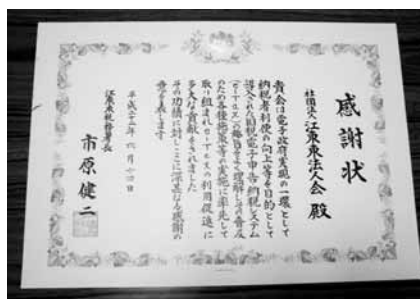 感謝状
社団法人 江東東法人会 殿
貴会は電子政府実現の一環として
納税者利便の向上等を目的として
導入された国税電子申告・納税システム
(e-Tax)の趣旨をよく理解しその普及
のため各種施策等の実施に率先して
取り組まれe-Taxの利用促進に
多大な貢献をされました
その功績に対しここに深甚なる感謝の
意を表します
平成二十三年六月十四日
江東東税務署長
市原健二